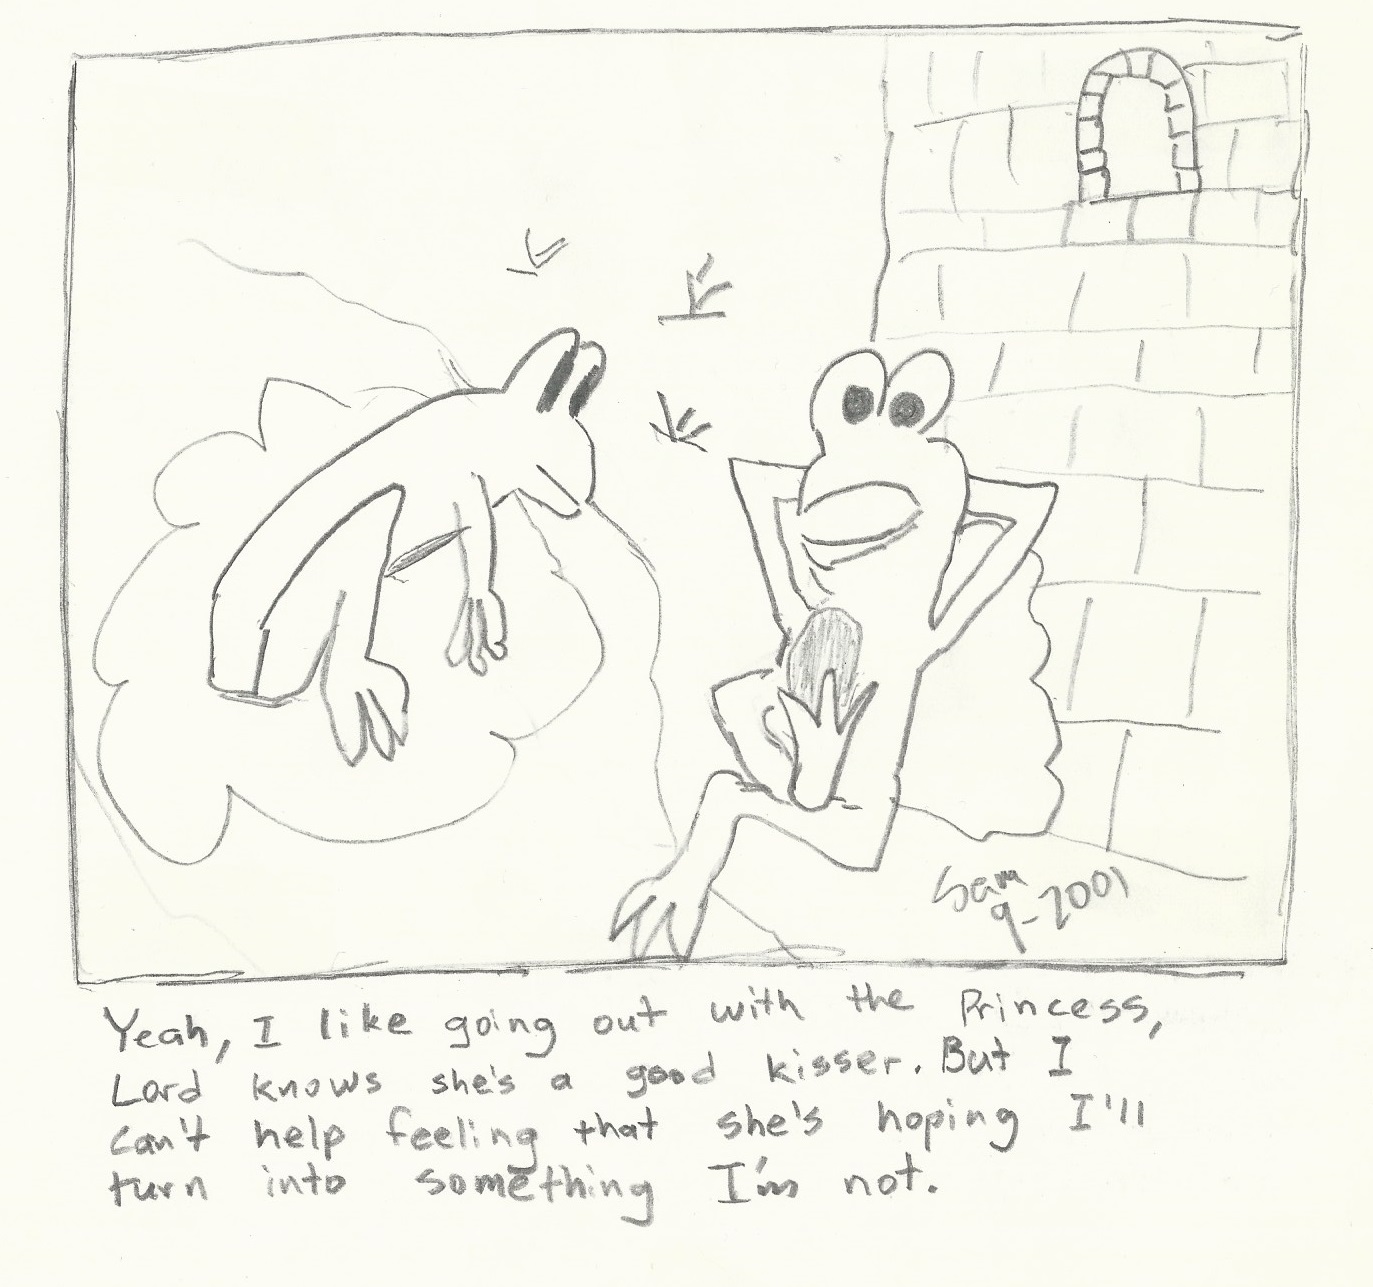 Sam
9-2001
Yeah, I like going out with the Princess,
Lord knows she's a good kisser. But I
can't help feeling that she's hoping I'll
turn into something I'm not.